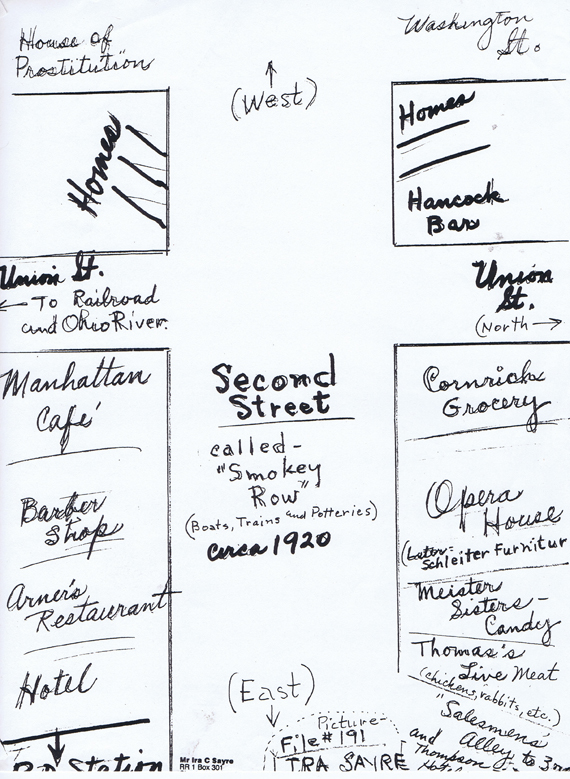 House of
Prostitution
Washington
St.
(West)
Homes
Homes
Hancock
Bar
Union St.
← To Railroad
and Ohio River.
Union
St.
(North →
Manhattan
Café
Barber
Shop
Arner's
Restaurant
Hotel
Station
Second
Street
called-
"Smokey
Row"
(Boats, Trains and Potteries)
circa 1920
(East)
Picture-
File # 191
IRA SAYRE
Mr Ira C Sayre
RR 1 Box 301
Cornrich
Grocery
Opera
House
(Later-
Schleiter Furnitur
Meister
Sisters-
Candy
Thomas's
Live Meat
(chickens, rabbits, etc.)
"Salesmen's
Alley" to 3rd
and
Thompson